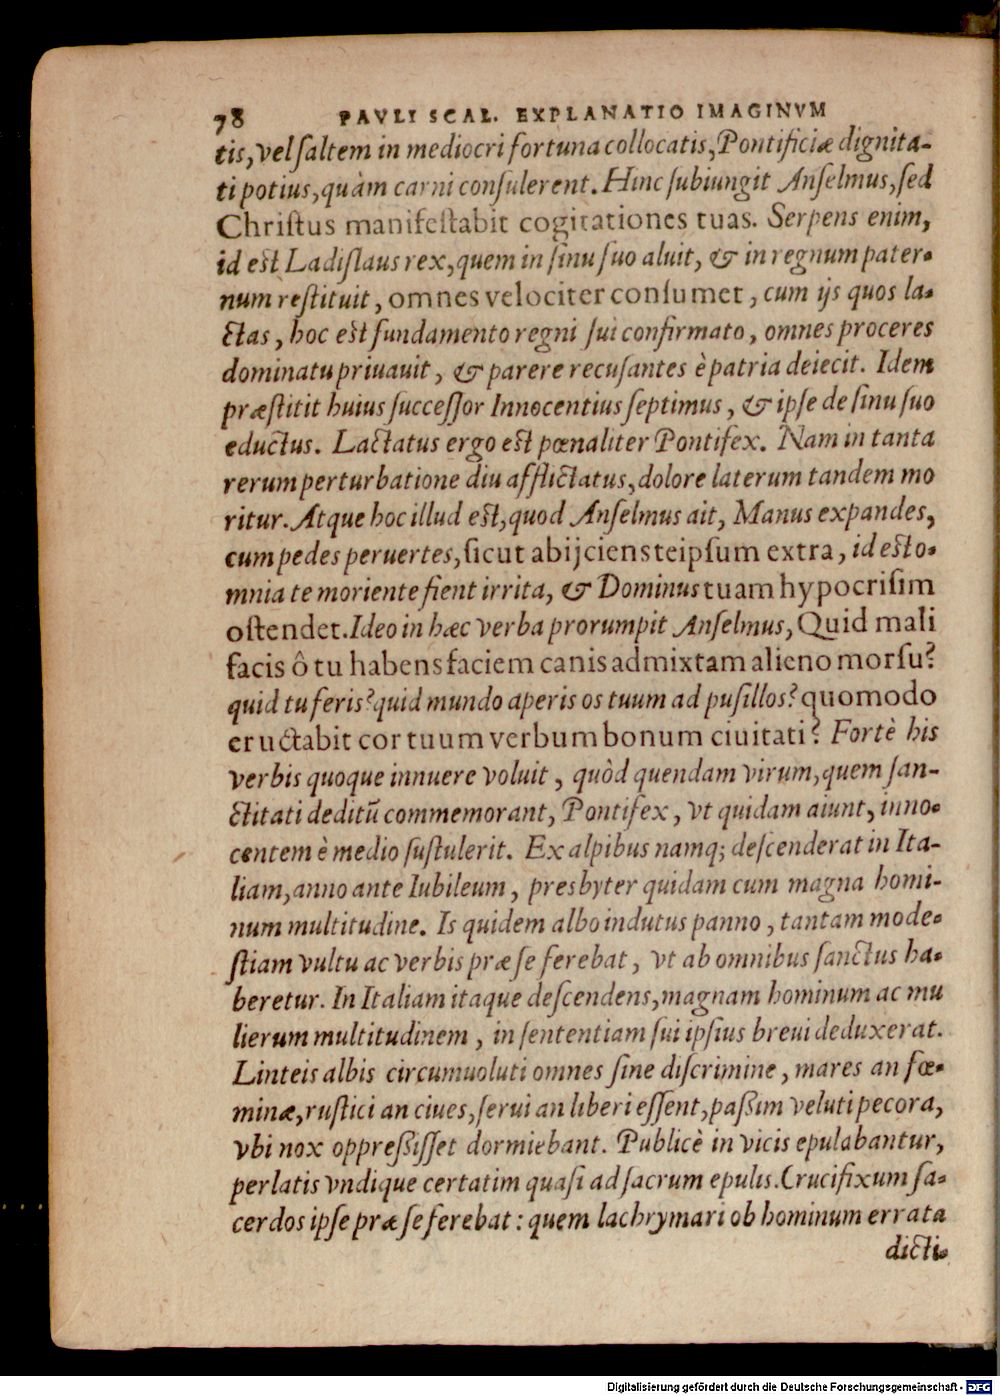 78 PAVLI SCAL. EXPLANATIO IMAGINVM
tis, vel ſaltem in mediocri fortuna collocatis, Pontificiæ dignita-
ti potius, quàm carni conſulerent. Hinc ſubiungit Anſelmus, ſed
Chriſtus manifeſtabit cogitationes tuas. Serpens enim,
id eſt Ladiſlaus rex, quem in ſinu ſuo aluit, & in regnum pater-
num reſtituit, omnes velociter conſumet, cum ijs quos la-
ctas, hoc eſt fundamento regni ſui confirmato, omnes proceres
dominatu priuauit, & parere recuſantes è patria deiecit. Idem
præſtitit huius ſucceſſor Innocentius ſeptimus, & ipſe de ſinu ſuo
eductus. Lactatus ergo eſt pœnaliter Pontifex. Nam in tanta
rerum perturbatione diu afflictatus, dolore laterum tandem mo
ritur. Atque hoc illud eſt, quod Anſelmus ait, Manus expandes,
cum pedes peruertes, ſicut abijciens teipſum extra, id eſt o-
mnia te moriente fient irrita, & Dominus tuam hypocriſim
oſtendet. Ideo in hæc verba prorumpit Anſelmus, Quid mali
facis ô tu habens faciem canis admixtam alieno morſu?
quid tu feris? quid mundo aperis os tuum ad puſillos? quomodo
eructabit cor tuum verbum bonum ciuitati? Fortè his
verbis quoque innuere voluit, quòd quendam virum, quem ſan-
ctitati deditũ commemorant, Pontifex, vt quidam aiunt, inno-
centem è medio ſuſtulerit. Ex alpibus namq; deſcenderat in Ita-
liam, anno ante Iubileum, presbyter quidam cum magna homi-
num multitudine. Is quidem albo indutus panno, tantam mode-
ſtiam vultu ac verbis præ ſe ferebat, vt ab omnibus ſanctus ha-
beretur. In Italiam itaque deſcendens, magnam hominum ac mu
lierum multitudinem, in ſententiam ſui ipſius breui deduxerat.
Linteis albis circumuoluti omnes ſine diſcrimine, mares an fœ-
minæ, ruſtici an ciues, ſerui an liberi eſſent, paßim veluti pecora,
vbi nox oppreßiſſet dormiebant. Publicè in vicis epulabantur,
perlatis vndique certatim quaſi ad ſacrum epulis. Crucifixum ſa-
cerdos ipſe præ ſe ferebat: quem lachrymari ob hominum errata
dicti-
Digitalisierung gefördert durch die Deutsche Forschungsgemeinschaft - DFG